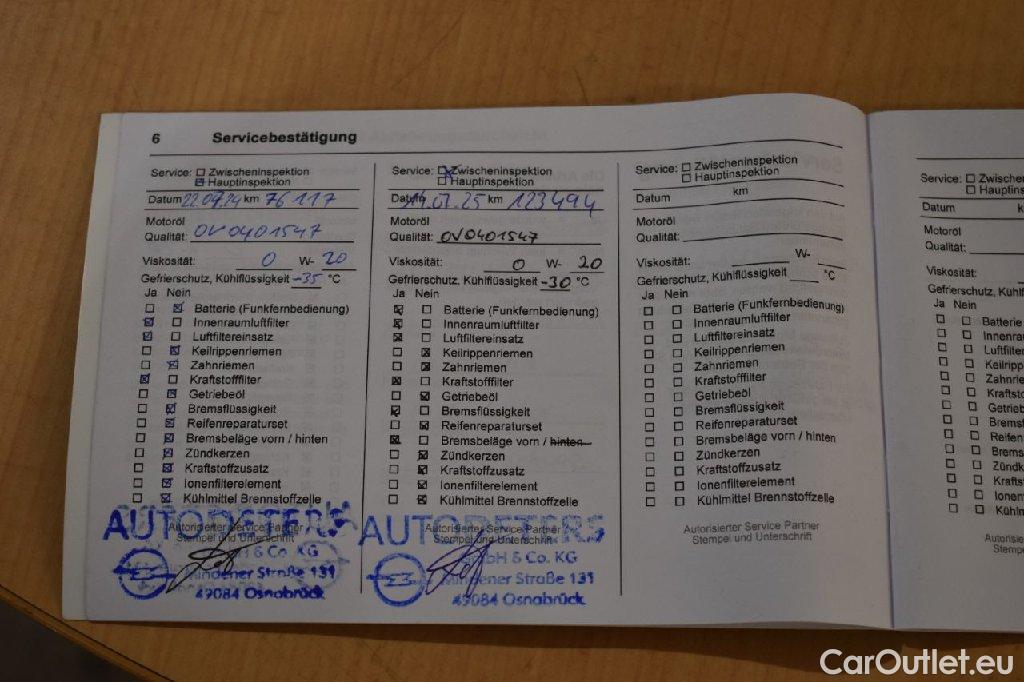 6 Servicebestätigung
Service: Zwischeninspektion
Hauptinspektion
Datum 22.07.24 km 76 117
Motoröl
Qualität: OV0401547
Viskosität: 0 W- 20
Gefrierschutz, Kühlflüssigkeit -35 °C
Ja Nein
Batterie (Funkfernbedienung)
Innenraumluftfilter
Luftfiltereinsatz
Keilrippenriemen
Zahnriemen
Kraftstofffilter
Getriebeöl
Bremsflüssigkeit
Reifenreparaturset
Bremsbeläge vorn / hinten
Zündkerzen
Kraftstoffzusatz
Ionenfilterelement
Kühlmittel Brennstoffzelle
Autorisierter Service Partner
Stempel und Unterschrift
AUTOPETERS
GmbH & Co. KG
Mindener Straße 131
49084 Osnabrück
Service: Zwischeninspektion
Hauptinspektion
Datum .07.25 km 123494
Motoröl
Qualität: OV0401547
Viskosität: 0 W- 20
Gefrierschutz, Kühlflüssigkeit -30 °C
Ja Nein
Batterie (Funkfernbedienung)
Innenraumluftfilter
Luftfiltereinsatz
Keilrippenriemen
Zahnriemen
Kraftstofffilter
Getriebeöl
Bremsflüssigkeit
Reifenreparaturset
Bremsbeläge vorn / hinten
Zündkerzen
Kraftstoffzusatz
Ionenfilterelement
Kühlmittel Brennstoffzelle
Autorisierter Service Partner
Stempel und Unterschrift
AUTOPETERS
GmbH & Co. KG
Mindener Straße 131
49084 Osnabrück
Service: Zwischeninspektion
Hauptinspektion
Datum km
Motoröl
Qualität:
Viskosität: W-
Gefrierschutz, Kühlflüssigkeit °C
Ja Nein
Batterie (Funkfernbedienung)
Innenraumluftfilter
Luftfiltereinsatz
Keilrippenriemen
Zahnriemen
Kraftstofffilter
Getriebeöl
Bremsflüssigkeit
Reifenreparaturset
Bremsbeläge vorn / hinten
Zündkerzen
Kraftstoffzusatz
Ionenfilterelement
Kühlmittel Brennstoffzelle
Autorisierter Service Partner
Stempel und Unterschrift
Service: Zwischen
Hauptins
Datum k
Motoröl
Qualität:
Viskosität:
Gefrierschutz, Kühlfl
Ja Nein
Batterie
Innenrau
Luftfilte
Keilripp
Zahnrie
Kraftsto
Getrieb
Bremsf
Reifen
Brems
Zündk
Krafts
Ionenf
Kühlm
Autoris
Ste
CarOutlet.eu